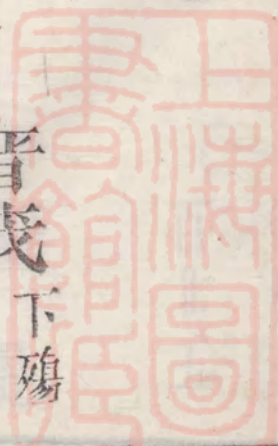 上海圖
書館藏
晋 下殤